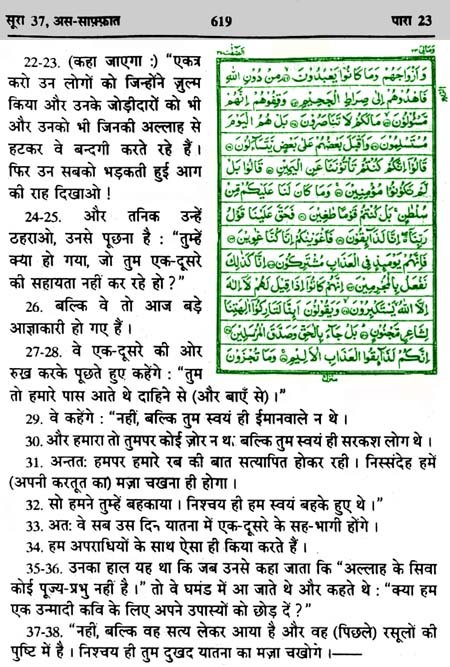 सूरा 37, अस-साफ़्फ़ात 619 पारा 23
22-23. (कहा जाएगा :) “एकत्र
करो उन लोगों को जिन्होंने ज़ुल्म
किया और उनके जोड़ीदारों को भी
और उनको भी जिनकी अल्लाह से
हटकर वे बन्दगी करते रहे हैं ।
फिर उन सबको भड़कती हुई आग
की राह दिखाओ !
24-25. और तनिक उन्हें
ठहराओ, उनसे पूछना है : “तुम्हें
क्या हो गया, जो तुम एक-दूसरे
की सहायता नहीं कर रहे हो ?”
26. बल्कि वे तो आज बड़े
आज्ञाकारी हो गए हैं ।
27-28. वे एक-दूसरे की ओर
रुख़ करके पूछते हुए कहेंगे : “तुम
وَأَزْوَاجَهُمْ وَمَا كَانُوا يَعْبُدُونَ ۝ مِنْ دُونِ اللّٰهِ
فَاهْدُوهُمْ إِلَىٰ صِرَاطِ الْجَحِيمِ ۝ وَقِفُوهُمْ إِنَّهُمْ
مَسْئُولُونَ ۝ مَا لَكُمْ لَا تَنَاصَرُونَ ۝ بَلْ هُمُ الْيَوْمَ
مُسْتَسْلِمُونَ ۝ وَأَقْبَلَ بَعْضُهُمْ عَلَىٰ بَعْضٍ يَتَسَاءَلُونَ ۝
قَالُوا إِنَّكُمْ كُنْتُمْ تَأْتُونَنَا عَنِ الْيَمِينِ ۝ قَالُوا بَلْ
لَمْ تَكُونُوا مُؤْمِنِينَ ۝ وَمَا كَانَ لَنَا عَلَيْكُمْ مِنْ
سُلْطٰنٍ بَلْ كُنْتُمْ قَوْمًا طٰغِينَ ۝ فَحَقَّ عَلَيْنَا قَوْلُ
رَبِّنَا إِنَّا لَذَائِقُونَ ۝ فَأَغْوَيْنٰكُمْ إِنَّا كُنَّا غٰوِينَ ۝
فَإِنَّهُمْ يَوْمَئِذٍ فِي الْعَذَابِ مُشْتَرِكُونَ ۝ إِنَّا كَذٰلِكَ
نَفْعَلُ بِالْمُجْرِمِينَ ۝ إِنَّهُمْ كَانُوا إِذَا قِيلَ لَهُمْ لَا إِلٰهَ
إِلَّا اللّٰهُ يَسْتَكْبِرُونَ ۝ وَيَقُولُونَ أَئِنَّا لَتَارِكُوا آلِهَتِنَا
لِشَاعِرٍ مَجْنُونٍ ۝ بَلْ جَاءَ بِالْحَقِّ وَصَدَّقَ الْمُرْسَلِينَ ۝
إِنَّكُمْ لَذَائِقُوا الْعَذَابِ الْأَلِيمِ ۝ وَمَا تُجْزَوْنَ
तो हमारे पास आते थे दाहिने से (और बाएँ से) ।”
29. वे कहेंगे : “नहीं, बल्कि तुम स्वयं ही ईमानवाले न थे ।
30. और हमारा तो तुमपर कोई ज़ोर न था; बल्कि तुम स्वयं ही सरकश लोग थे ।
31. अन्ततः हमपर हमारे रब की बात सत्यापित होकर रही । निस्संदेह हमें
(अपनी करतूत का) मज़ा चखना ही होगा ।
32. सो हमने तुम्हें बहकाया । निश्चय ही हम स्वयं बहके हुए थे ।”
33. अतः वे सब उस दिन यातना में एक-दूसरे के सह-भागी होंगे ।
34. हम अपराधियों के साथ ऐसा ही किया करते हैं ।
35-36. उनका हाल यह था कि जब उनसे कहा जाता कि “अल्लाह के सिवा
कोई पूज्य-प्रभु नहीं है ।” तो वे घमंड में आ जाते थे और कहते थे : “क्या हम
एक उन्मादी कवि के लिए अपने उपास्यों को छोड़ दें ?”
37-38. “नहीं, बल्कि वह सत्य लेकर आया है और वह (पिछले) रसूलों की
पुष्टि में है । निश्चय ही तुम दुखद यातना का मज़ा चखोगे ।——